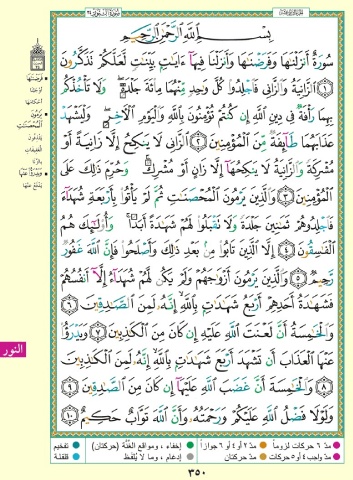 بِسْمِ اللَّهِ الرَّحْمَٰنِ الرَّحِيمِ
سُورَةٌ أَنزَلْنَٰهَا وَفَرَضْنَٰهَا وَأَنزَلْنَا فِيهَآ ءَايَٰتٍۭ بَيِّنَٰتٍ لَّعَلَّكُمْ تَذَكَّرُونَ
١ ٱلزَّانِيَةُ وَٱلزَّانِى فَٱجْلِدُوا۟ كُلَّ وَٰحِدٍ مِّنْهُمَا مِا۟ئَةَ جَلْدَةٍ ۖ وَلَا تَأْخُذْكُم
بِهِمَا رَأْفَةٌ فِى دِينِ ٱللَّهِ إِن كُنتُمْ تُؤْمِنُونَ بِٱللَّهِ وَٱلْيَوْمِ ٱلْءَاخِرِ ۖ وَلْيَشْهَدْ
عَذَابَهُمَا طَآئِفَةٌ مِّنَ ٱلْمُؤْمِنِينَ ٢ ٱلزَّانِى لَا يَنكِحُ إِلَّا زَانِيَةً أَوْ
مُشْرِكَةً وَٱلزَّانِيَةُ لَا يَنكِحُهَآ إِلَّا زَانٍ أَوْ مُشْرِكٌ ۚ وَحُرِّمَ ذَٰلِكَ عَلَى
ٱلْمُؤْمِنِينَ ٣ وَٱلَّذِينَ يَرْمُونَ ٱلْمُحْصَنَٰتِ ثُمَّ لَمْ يَأْتُوا۟ بِأَرْبَعَةِ شُهَدَآءَ
فَٱجْلِدُوهُمْ ثَمَٰنِينَ جَلْدَةً وَلَا تَقْبَلُوا۟ لَهُمْ شَهَٰدَةً أَبَدًا ۚ وَأُو۟لَٰٓئِكَ هُمُ
ٱلْفَٰسِقُونَ ٤ إِلَّا ٱلَّذِينَ تَابُوا۟ مِنۢ بَعْدِ ذَٰلِكَ وَأَصْلَحُوا۟ فَإِنَّ ٱللَّهَ غَفُورٌ
رَّحِيمٌ ٥ وَٱلَّذِينَ يَرْمُونَ أَزْوَٰجَهُمْ وَلَمْ يَكُن لَّهُمْ شُهَدَآءُ إِلَّآ أَنفُسُهُمْ
فَشَهَٰدَةُ أَحَدِهِمْ أَرْبَعُ شَهَٰدَٰتٍۭ بِٱللَّهِ ۙ إِنَّهُۥ لَمِنَ ٱلصَّٰدِقِينَ ٦
وَٱلْخَٰمِسَةُ أَنَّ لَعْنَتَ ٱللَّهِ عَلَيْهِ إِن كَانَ مِنَ ٱلْكَٰذِبِينَ ٧ وَيَدْرَؤُا۟
عَنْهَا ٱلْعَذَابَ أَن تَشْهَدَ أَرْبَعَ شَهَٰدَٰتٍۭ بِٱللَّهِ ۙ إِنَّهُۥ لَمِنَ ٱلْكَٰذِبِينَ
٨ وَٱلْخَٰمِسَةَ أَنَّ غَضَبَ ٱللَّهِ عَلَيْهَآ إِن كَانَ مِنَ ٱلصَّٰدِقِينَ ٩
وَلَوْلَا فَضْلُ ٱللَّهِ عَلَيْكُمْ وَرَحْمَتُهُۥ وَأَنَّ ٱللَّهَ تَوَّابٌ حَكِيمٌ ١٠
فَرَضْنَٰهَا
يَرْمُونَ
ٱلْمُحْصَنَٰتِ
النور
مدّ ٦ حركات لزوماً مدّ ٢ أو ٤ أو ٦ جوازاً إخفاء، ومواقع الغُنَّة (حركتان) تفخيم
مدّ واجب ٤ أو ٥ حركات مدّ حركتان إدغام، وما لا يُلفَظ قلقلة
٣٥٠